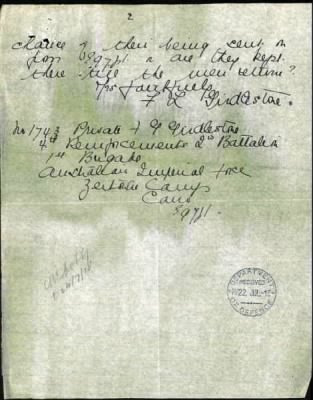 2
chance of them being sent on
from Egypt or are they kept
there till the men return?
Yrs faithfully
F. L. Girdlestone.
No 1743 Private F G Girdlestone
4th Reinforcements 2nd Battalion
1st Brigade
Australian Imperial Force
Zeitoun Camp
Cairo
Egypt.
DEPARTMENT
RECEIVED
22 JUL
OF DEFENCE